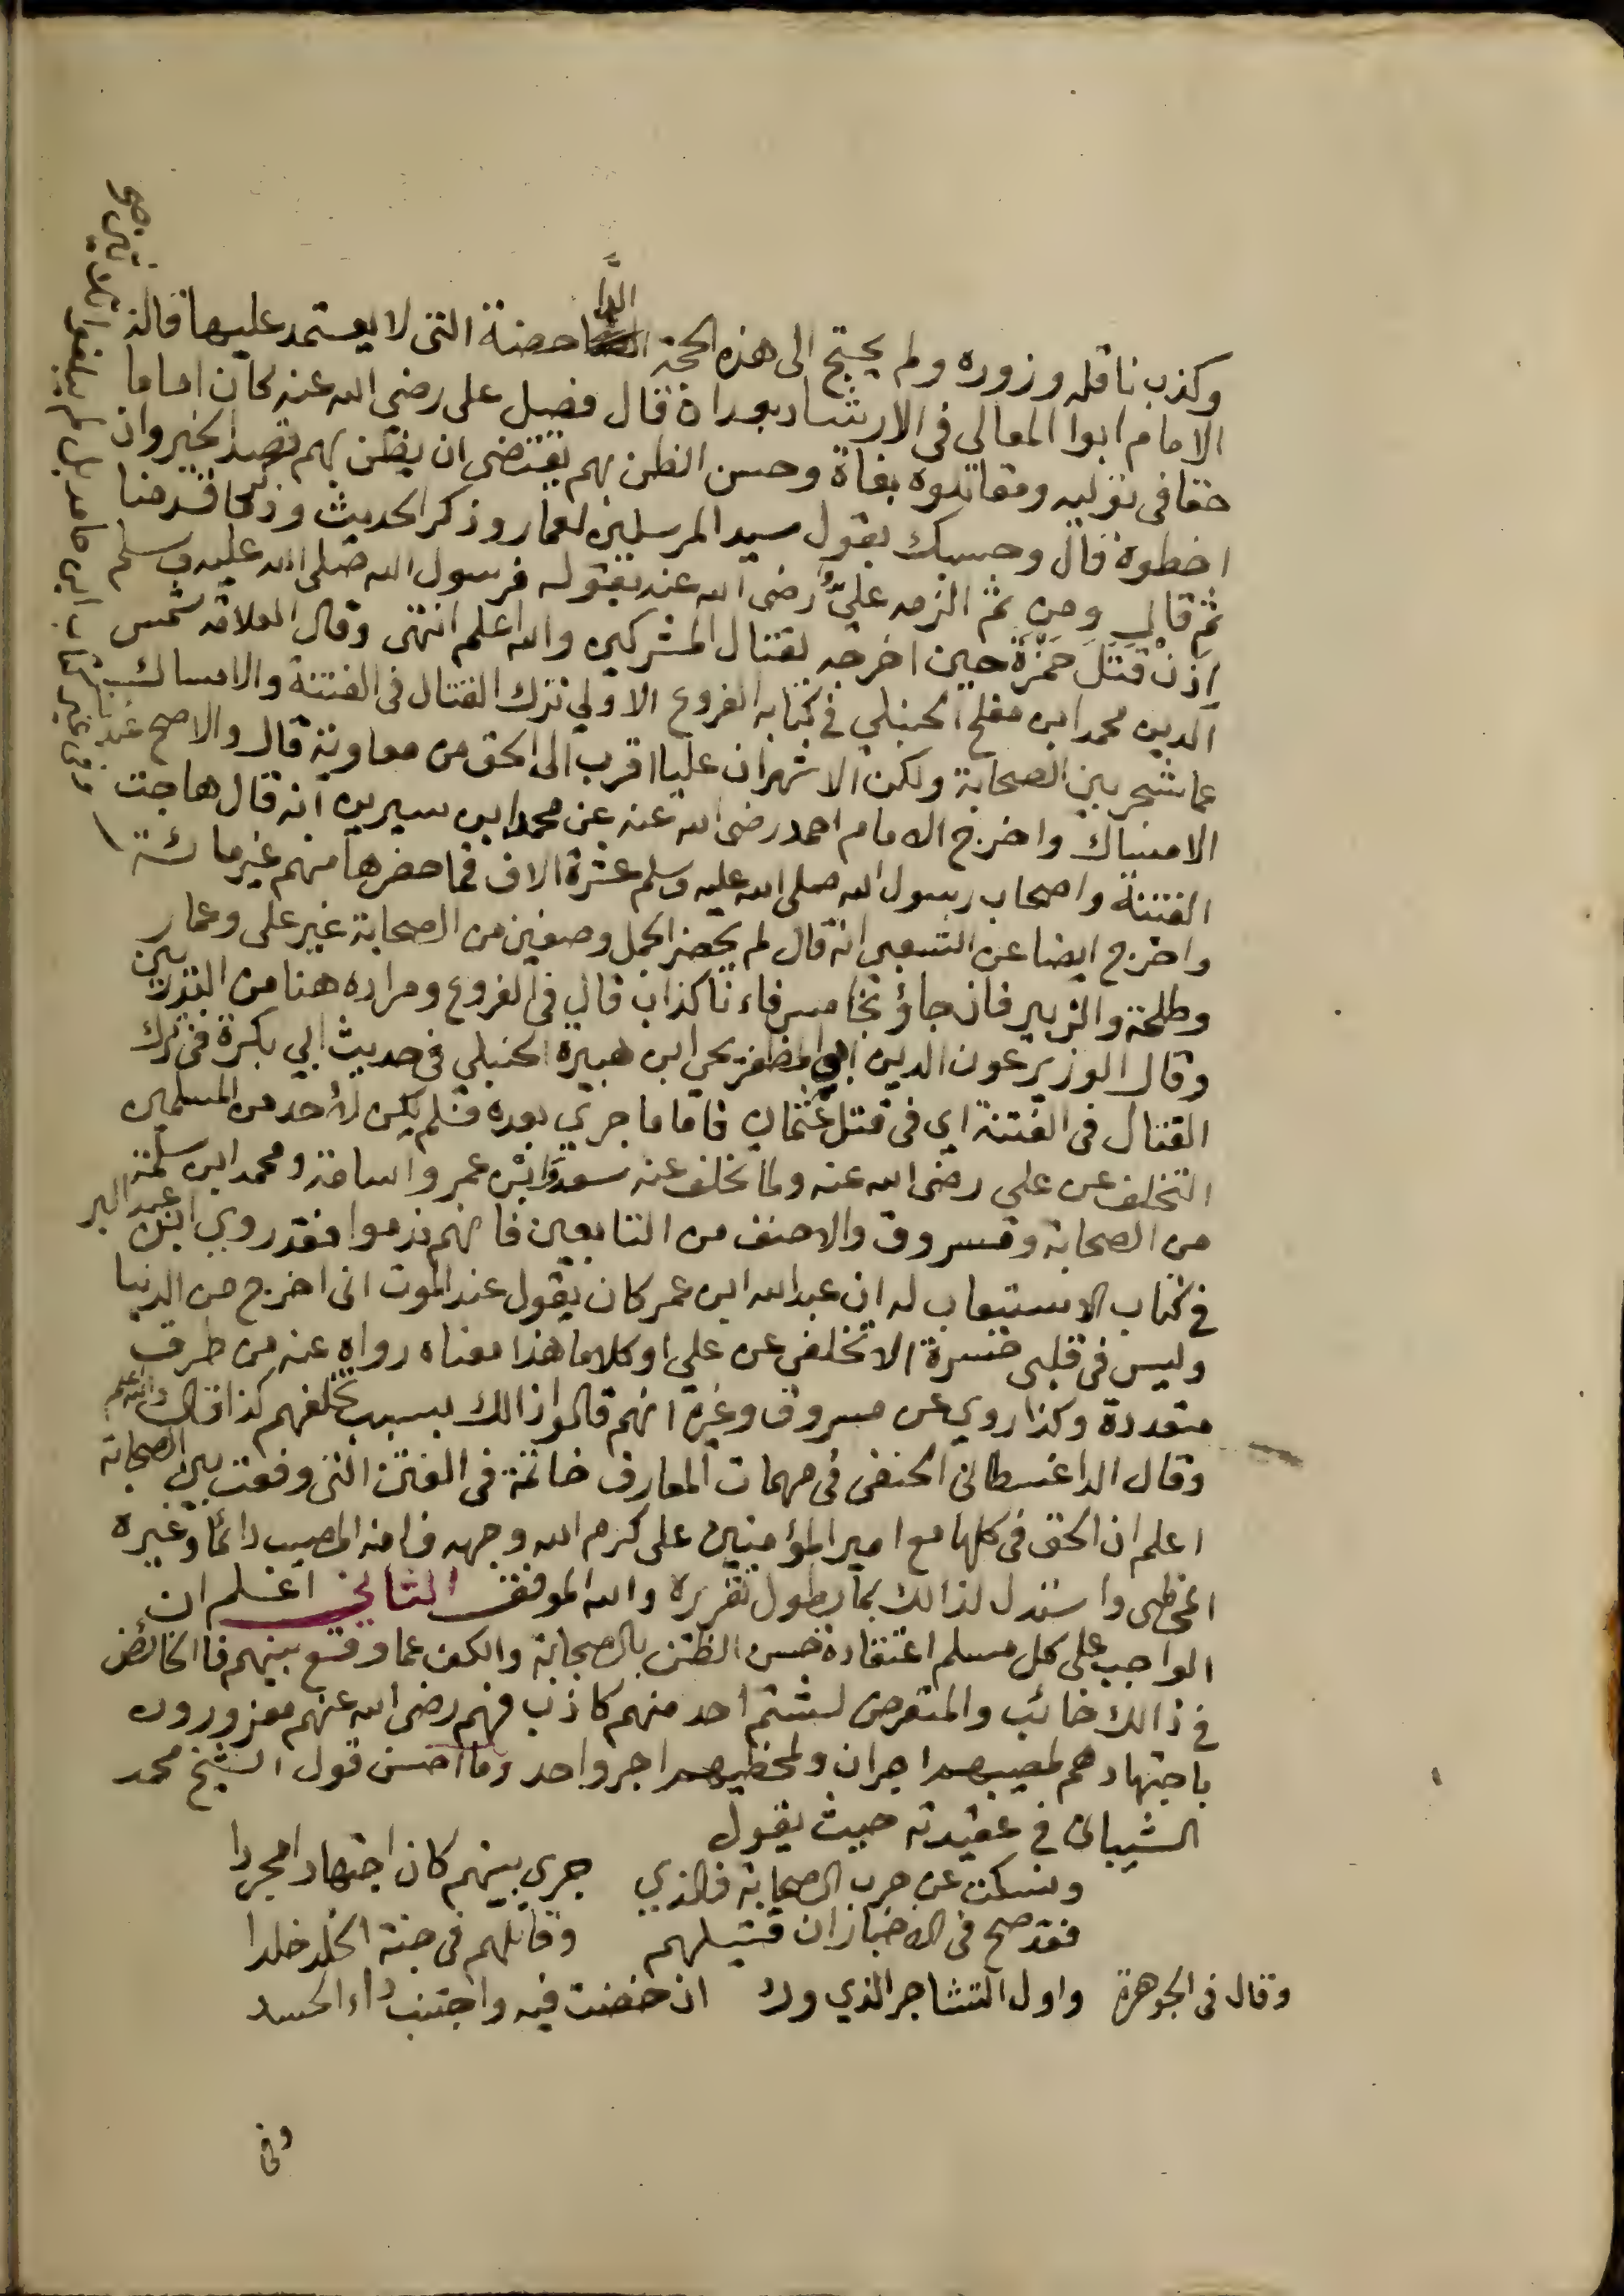 وكذب ناقله وزوره ولم يحتج الى هذه الحجة الدا حضة التى لا يعتمد عليها قال
الامام ابوا المعالى فى الارشاد بعد ان قال فصل على رضى الله عنه كان اماما
حقا فى توليه ومقاتلوه بغاة وحسن الظن بهم يقتضى ان يظن بهم قصد الخير وان
اخطوه قال وحسبك بقول سيد المرسلين لعمار وذكر الحديث وذكر ما قدمنا
ثم قال ومن ثم الزمه عليٌّ رضى الله عنه بقوله فرسول الله صلى الله عليه وسلم
اذن قتل حمزة حين اخرجه لقتال المشركين والله اعلم انتهى وقال العلامة شمس
الدين محمد ابن مفلح الحنبلي في كتابه الفروع الاولي ترك القتال فى الفتنة والامساك
عما شجر بين الصحابة ولكن الاشهر ان عليا اقرب الى الحق من معاوية قال والاصح عندنا
الامساك واخرج الامام احمد رضى الله عنه عن محمد ابن سيرين انه قال هاجت
الفتنة واصحاب رسول الله صلى الله عليه وسلم عشرة الاف فما حضرها منهم غير مائة
واخرج ايضا عن الشعبى انه قال لم يحضر الجمل وصفين من الصحابة غير على وعمار
وطلحة والزبير فان جاؤ بخامس فاءنا كذاب قال فى الفروع ومراده هنا من البدريين
وقال الوزير عون الدين ابو المظفر يحي ابن هبيرة الحنبلي في حديث ابي بكرة في ترك
القتال فى الفتنة اى فى قتل عثمان فاما ما جرى بعده فلم يكن لأحد من المسلمين
التخلف عن علي رضى الله عنه ولما تخلف عنه سعد وابن عمر واسامة ومحمد ابن مسلمة
من الصحابة ومسروق والاحنف من التابعين فانهم ندموا فقد روي ابن عبد البر
فى كتاب الاستيعاب له ان عبد الله ابن عمر كان يقول عند الموت انى اخرج من الدنيا
وليس فى قلبى حسرة الا تخلفى عن علي او كلاما هذا معناه رواه عنه من طرق
متعددة وكذا روي عن مسروق وغيره انهم قالوا ذالك بسبب تخلفهم كذا قال والله اعلم
وقال الداغسطانى الحنفى فى مهمات المعارف خاتمة فى الفتن التى وقعت بين الصحابة
اعلم ان الحق فى كلها مع امير المؤمنين على كرم الله وجهه فانه المصيب دائما وغيره
المخطى واستدل لذالك بما يطول تقريره والله الموفق الثاني اعلم ان
الواجب على كل مسلم اعتقاده حسن الظن بالصحابة والكف عما وقع بينهم فالخائض
فى ذالك خائب والمتعرض لشتم احد منهم كاذب فهم رضى الله عنهم معزورون
باجتهادهم لمصيبهم اجران ولمخطيهم اجر واحد وما احسن قول الشيخ محمد
الشيبانى في عقيدته حيث يقول
ونسكت عن حرب الصحابة فالذي جرى بينهم كان اجتهادا مجردا
فقد صح فى الاخبار ان قتيلهم وقاتلهم فى جنة الخلد خلدا
وقال فى الجوهرة واول التشاجر الذي ورد ان خضت فيه واجتنب داء الحسد
وفى